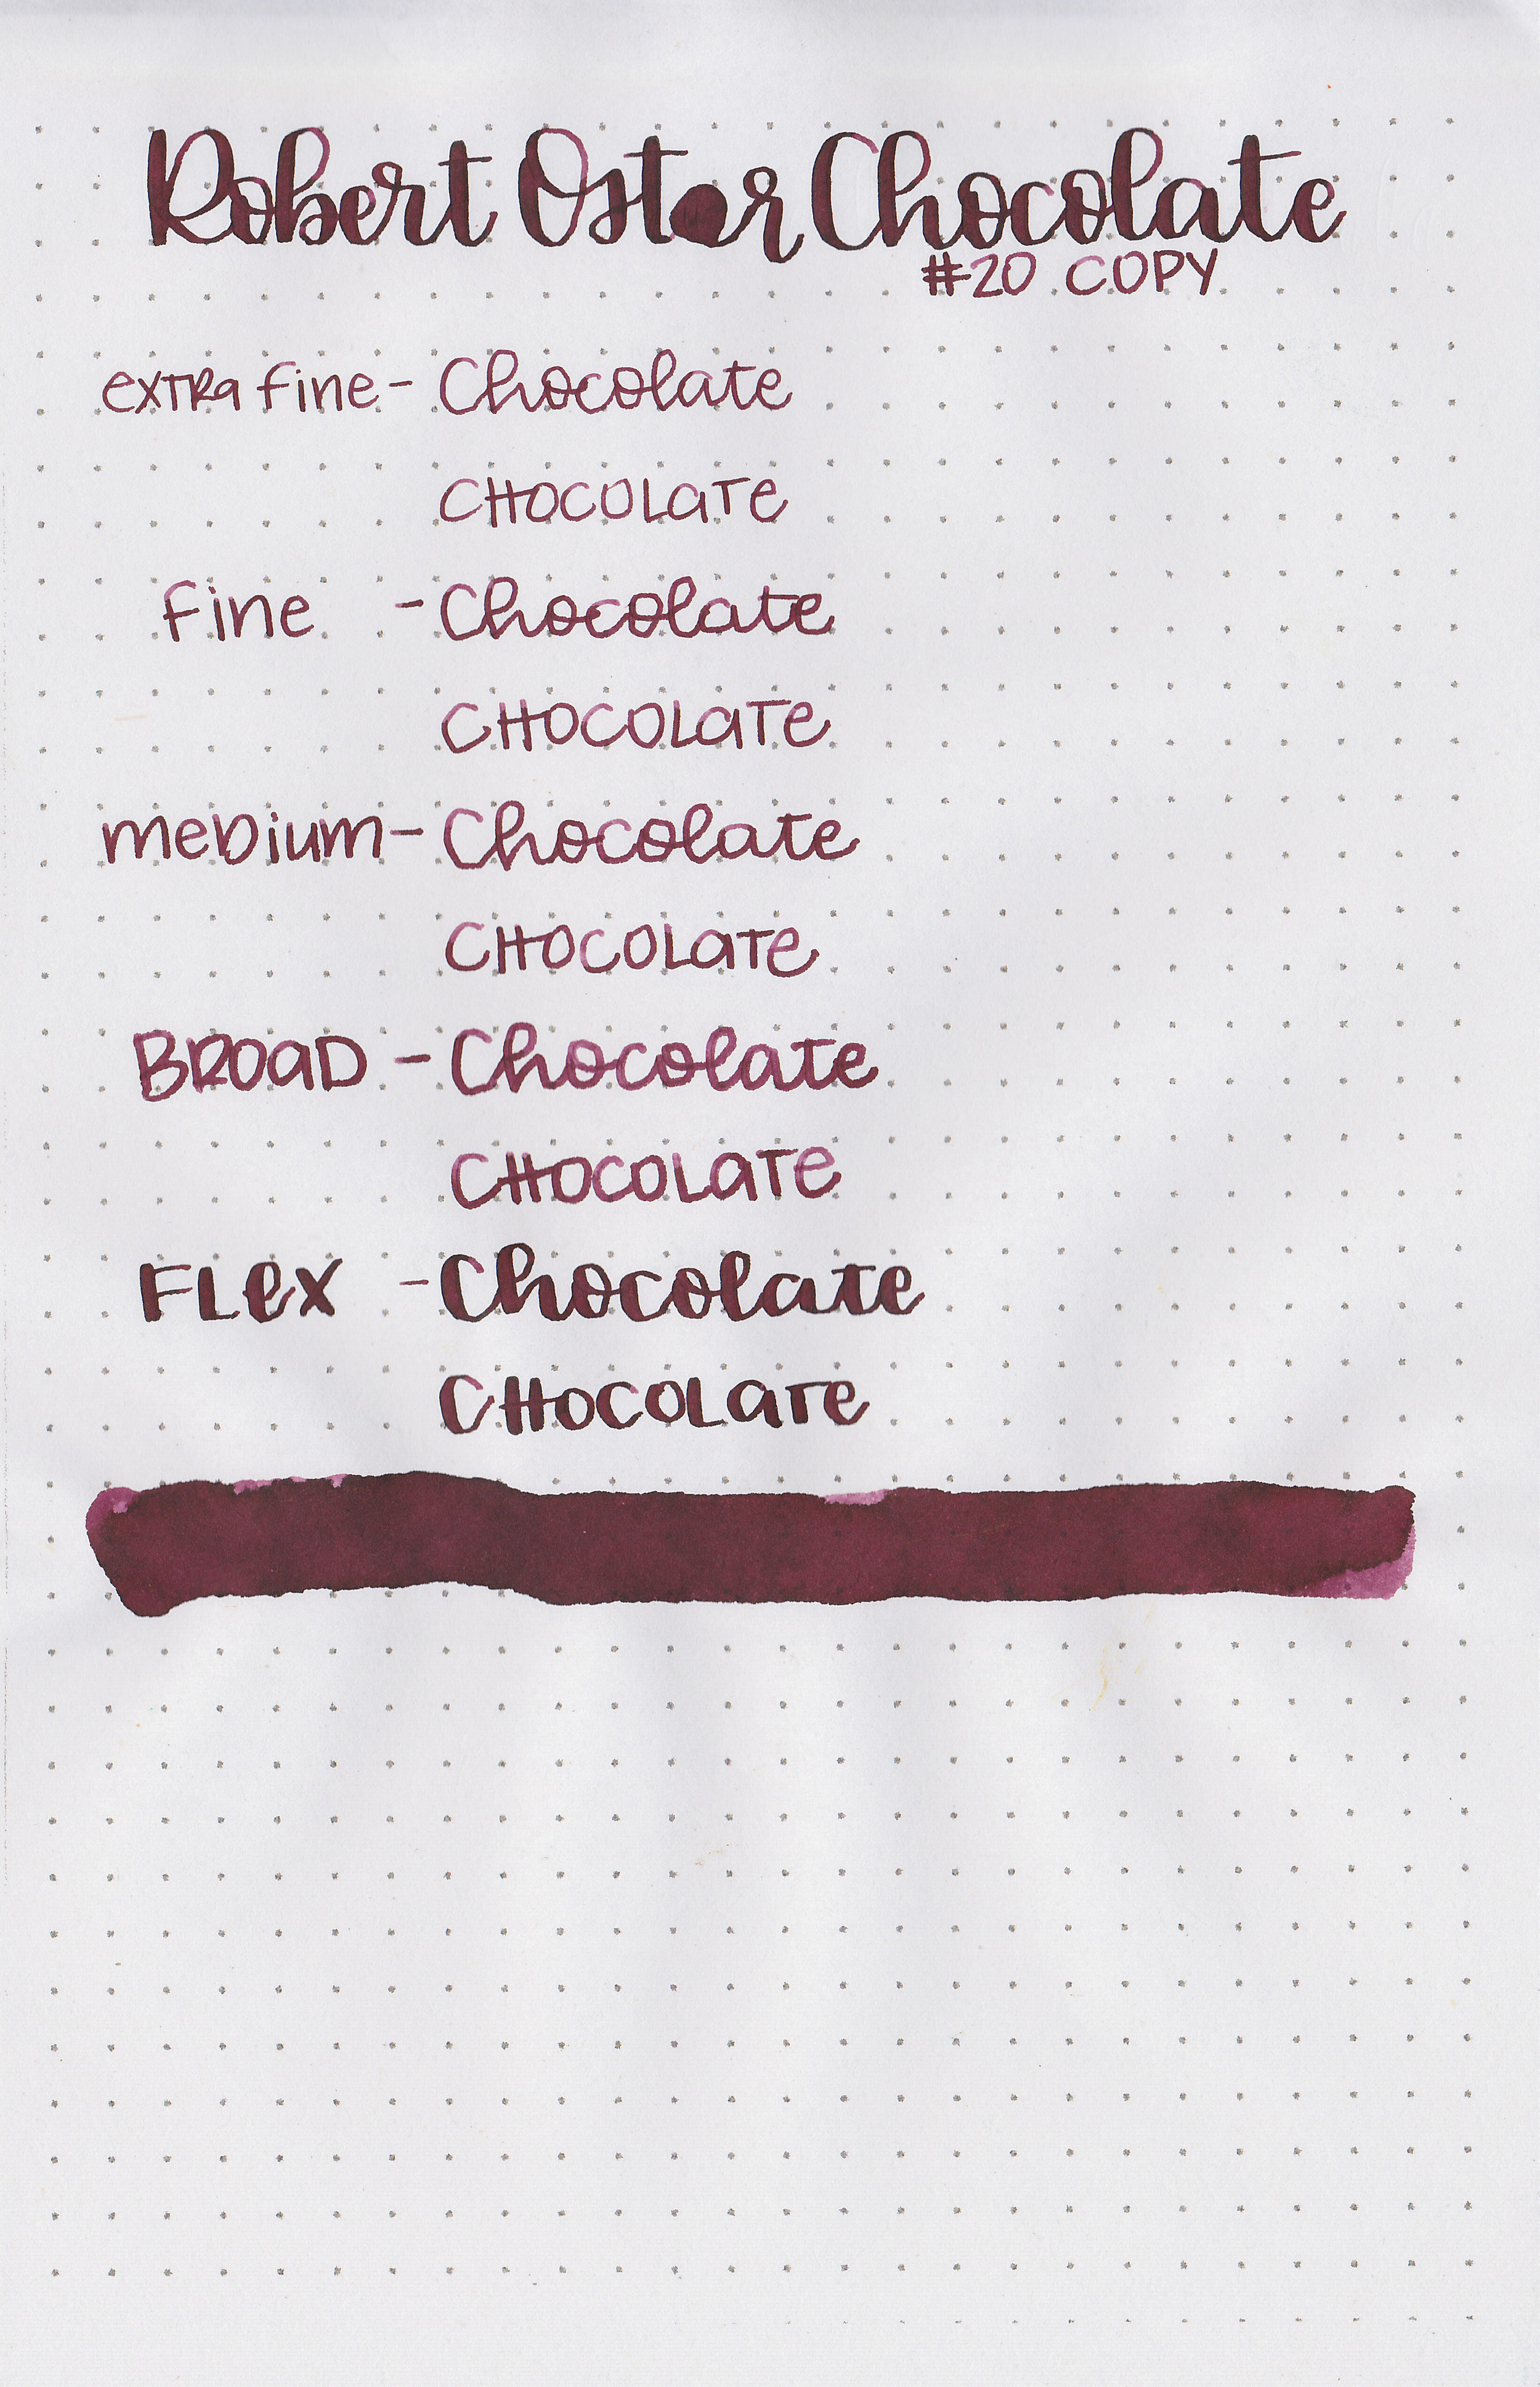 Robert Oster Chocolate
#20 COPY
extra fine - Chocolate
CHOCOLaTe
fine - Chocolate
CHOCOLaTe
meDium - Chocolate
CHOCOLaTe
BROaD - Chocolate
CHOCOLaTe
FLex - Chocolate
CHOCOLaTe